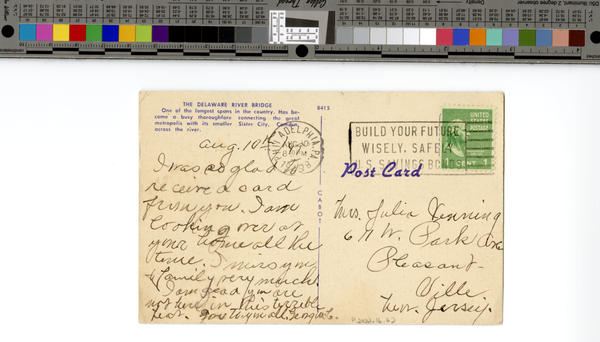 THE DELAWARE RIVER BRIDGE
One of the longest spans in the country. Has be-
come a busy thoroughfare connecting the great
metropolis with its smaller Sister City, Camden,
across the river.
8415
Aug. 10th
I was so glad
receive a card
from you. I am
looking over at
your home all the
time. I miss you
& family very much
I am glad you are
not here in this terrible
heat. Love to you all. Georgia C.
CABOT
PHILADELPHIA, PA.
AUG 10
8 PM
BUILD YOUR FUTURE
WISELY, SAFELY
U.S. SAVINGS BONDS
UNITED
STATES
POSTAGE
1 CENT 1
Post Card
Mrs. Julia Venning
W. Park Ave
Pleasant-
Ville
New Jersey.